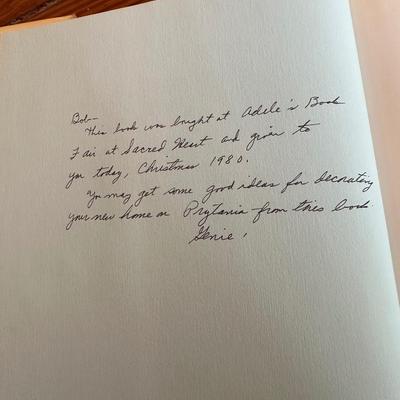 Bob—
This book was bought at Adele's Book
Fair at Sacred Heart and given to
you today, Christmas 1980.
You may get some good ideas for decorating
your new home on Prytania from this book.
Genie,